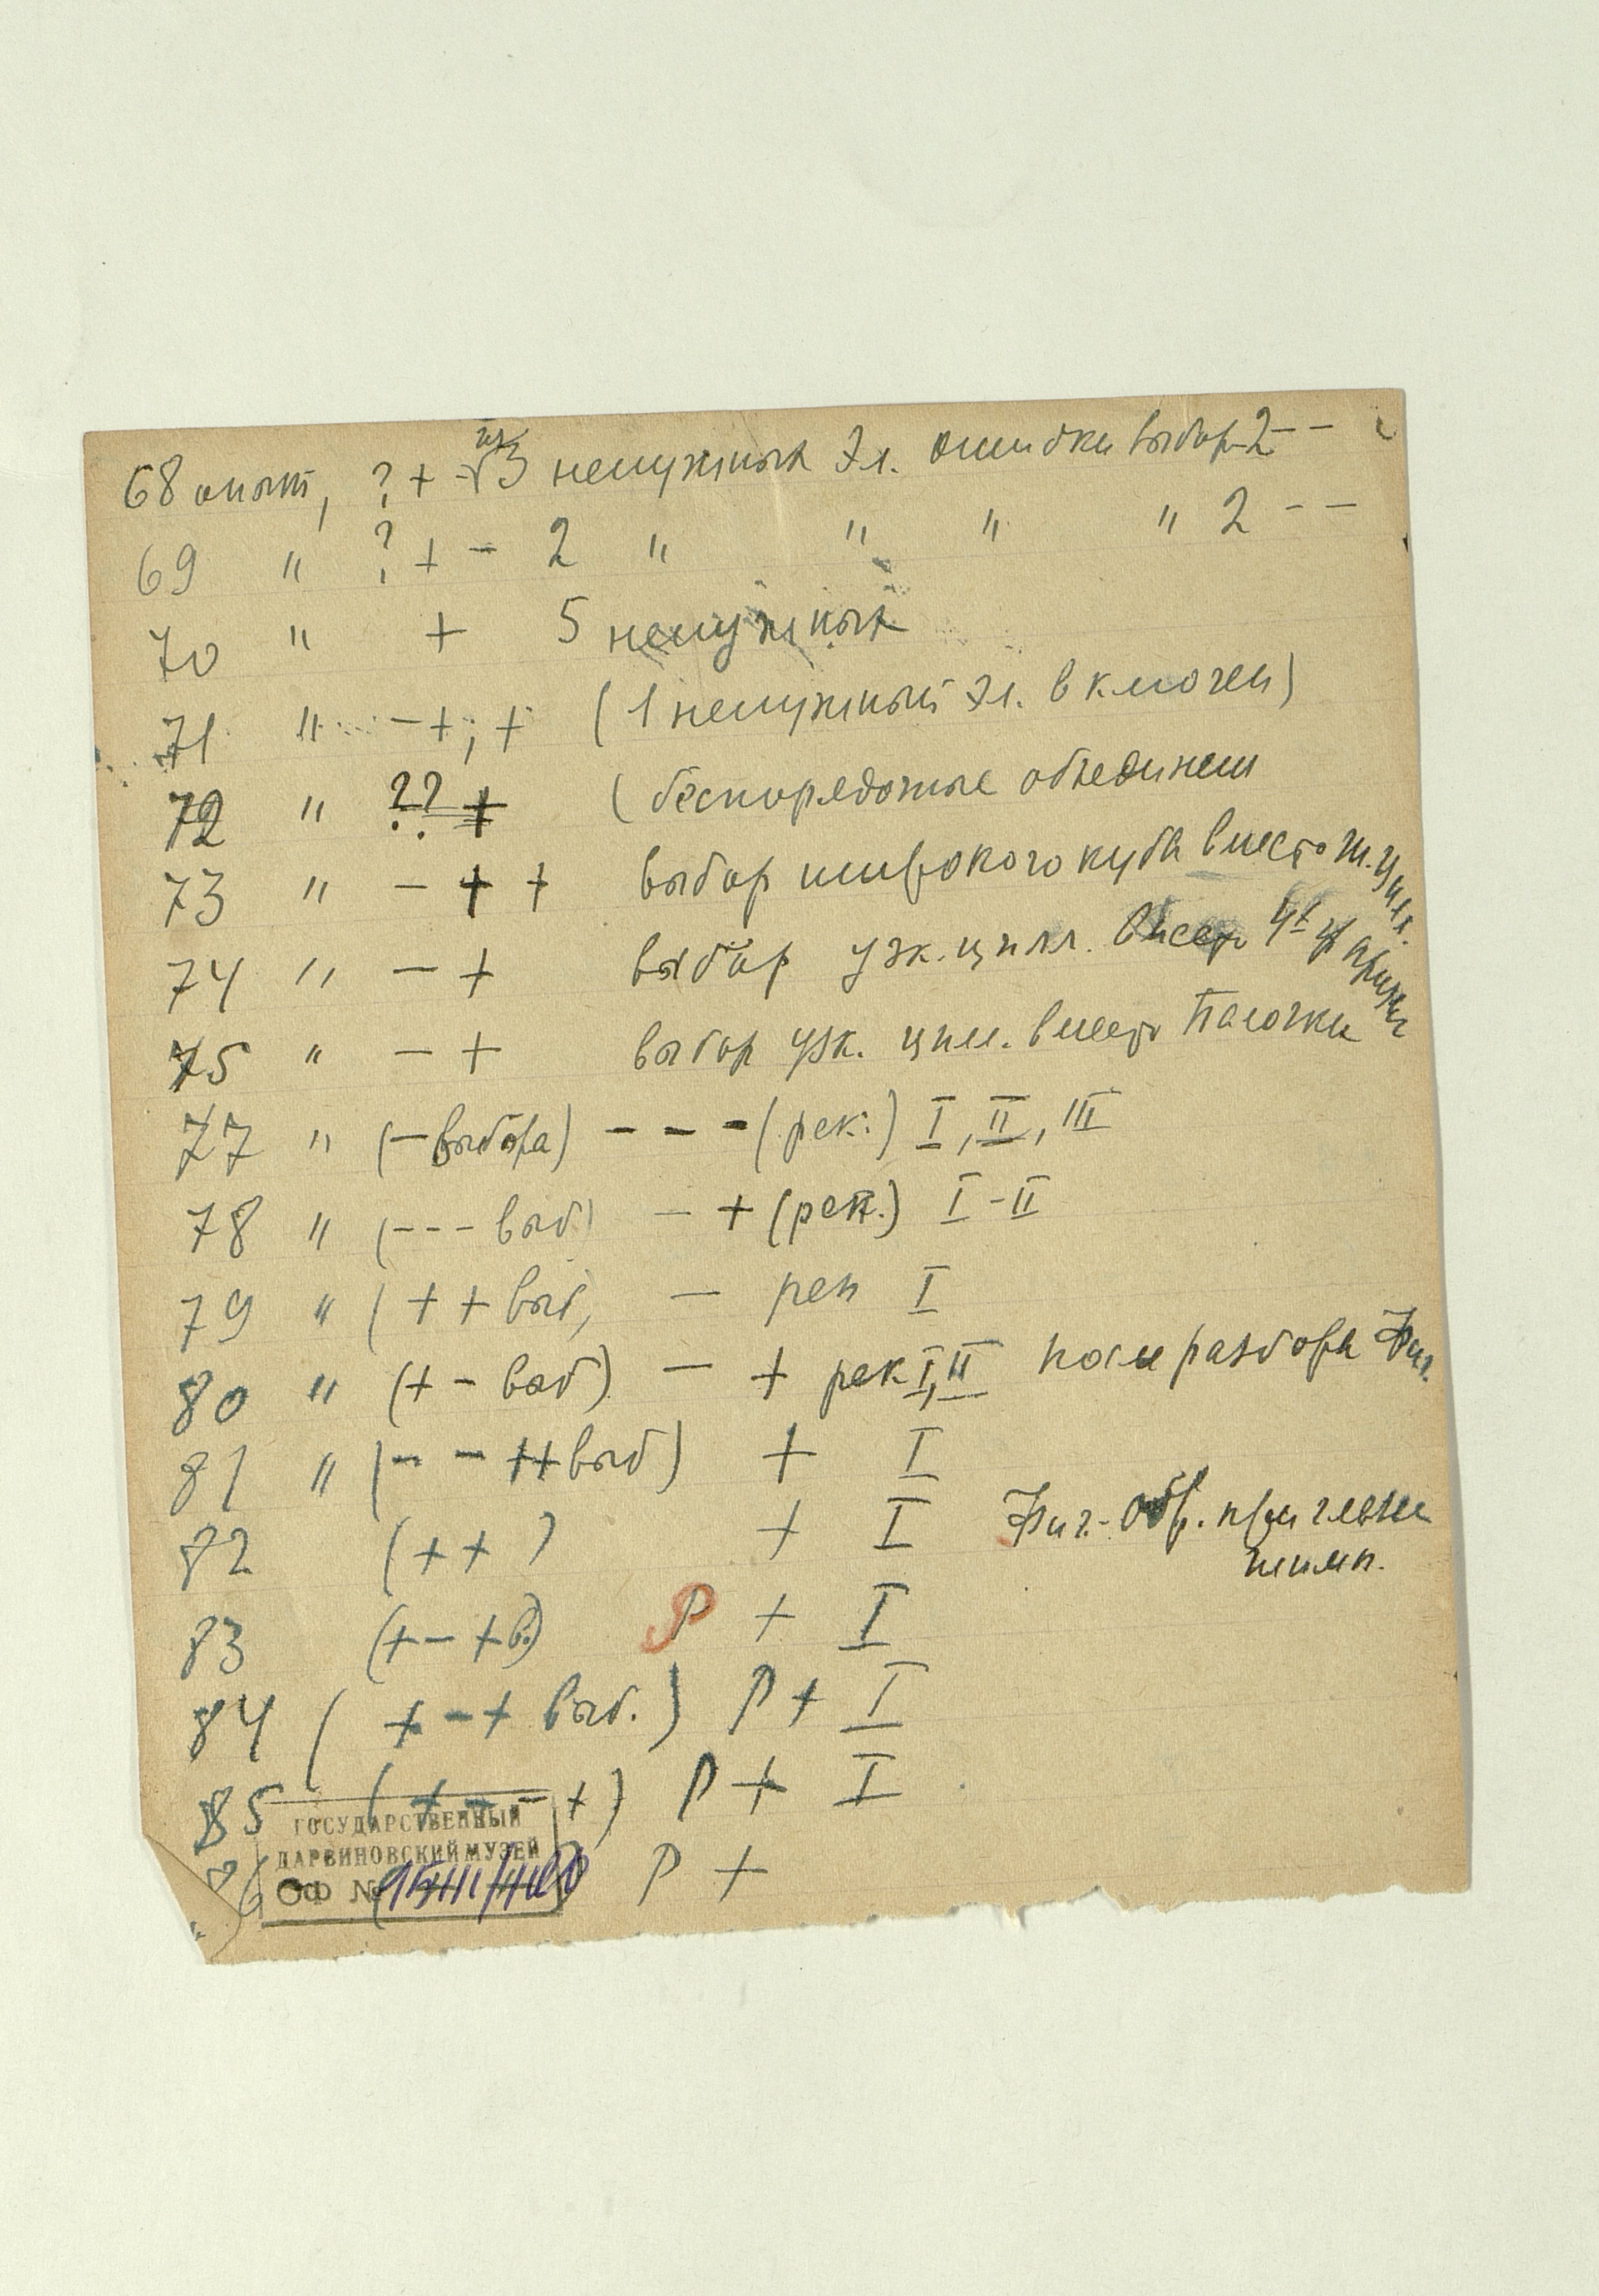 68 опыт, ? + - 3 ненужных эл. ошибки выбор 2 - -
69 " ? + - 2 " " " " 2 - -
70 " + 5 ненужных
71 " - +; + (1 ненужный эл. включен)
72 " ?? + (беспорядочные объединен
73 " - + + выбор широкого куба вместо ш. цил.
74 " - + выбор узк. цил. вместо 4х уг призмы
75 " - + выбор узк. цил. вместо палочки
77 " (- выбора) - - - (рек.) I, II, III
78 " (- - - выб) - + (рек.) I - II
79 " (+ + выб, - рек I
80 " (+ - выб) - + рек I, II после разбора Фиг.
81 " (- - ++ выб) + I
82 (+ + ) + I Фиг. - Обр. при
83 (+ - + в.) Р + I
84 ( + - + выб. ) Р + I
85 ( + - - + ) Р + I
86 Р +
ГОСУДАРСТВЕННЫЙ
ДАРВИНОВСКИЙ МУЗЕЙ
ОФ №